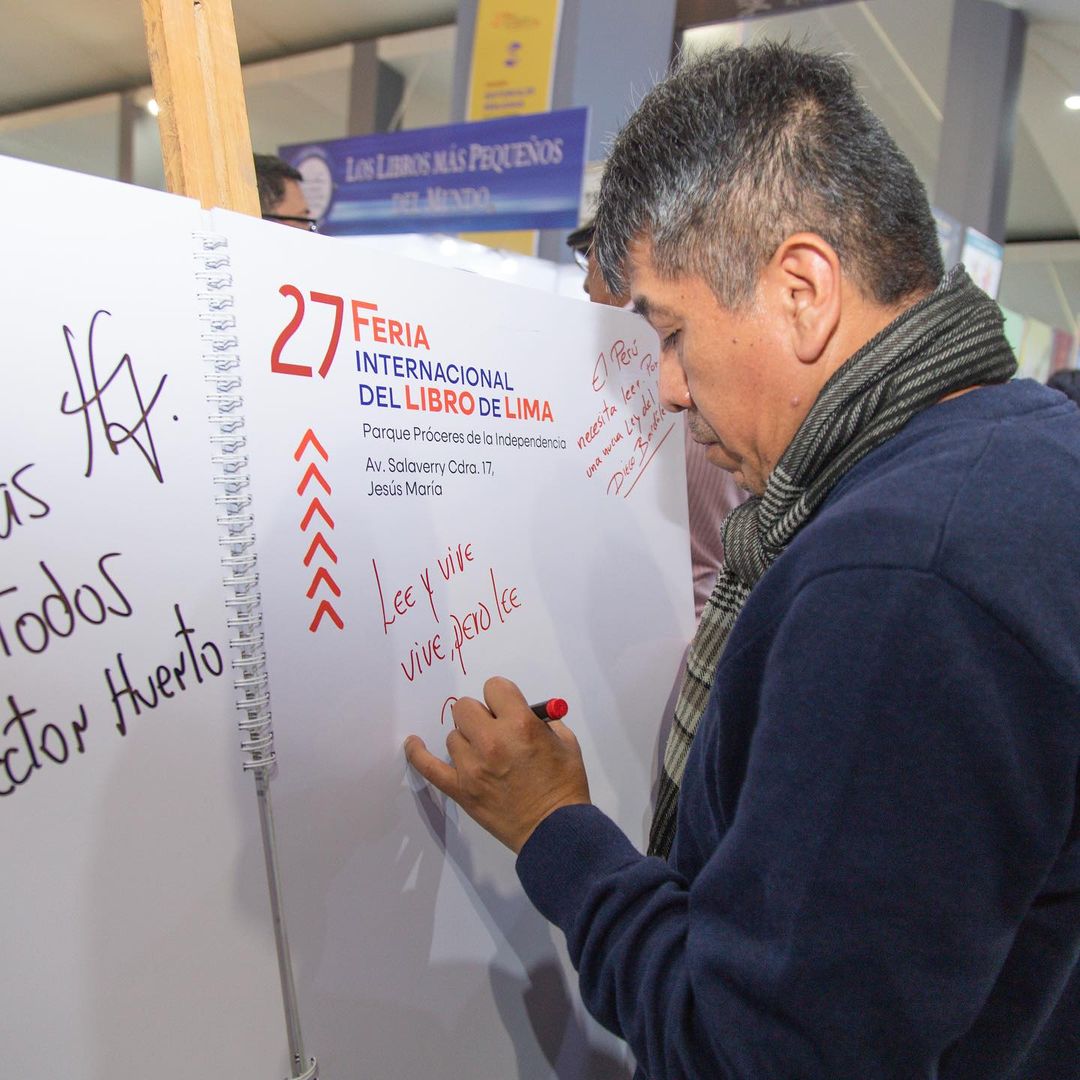 LOS LIBROS MÁS PEQUEÑOS
DEL MUNDO
27 FERIA
INTERNACIONAL
DEL LIBRO DE LIMA
Parque Próceres de la Independencia
Av. Salaverry Cdra. 17,
Jesús María
El Perú
necesita leer. Por
una nueva Ley del
Diego
Lee y vive
vive, pero lee
as
Todos
ctor Huerto